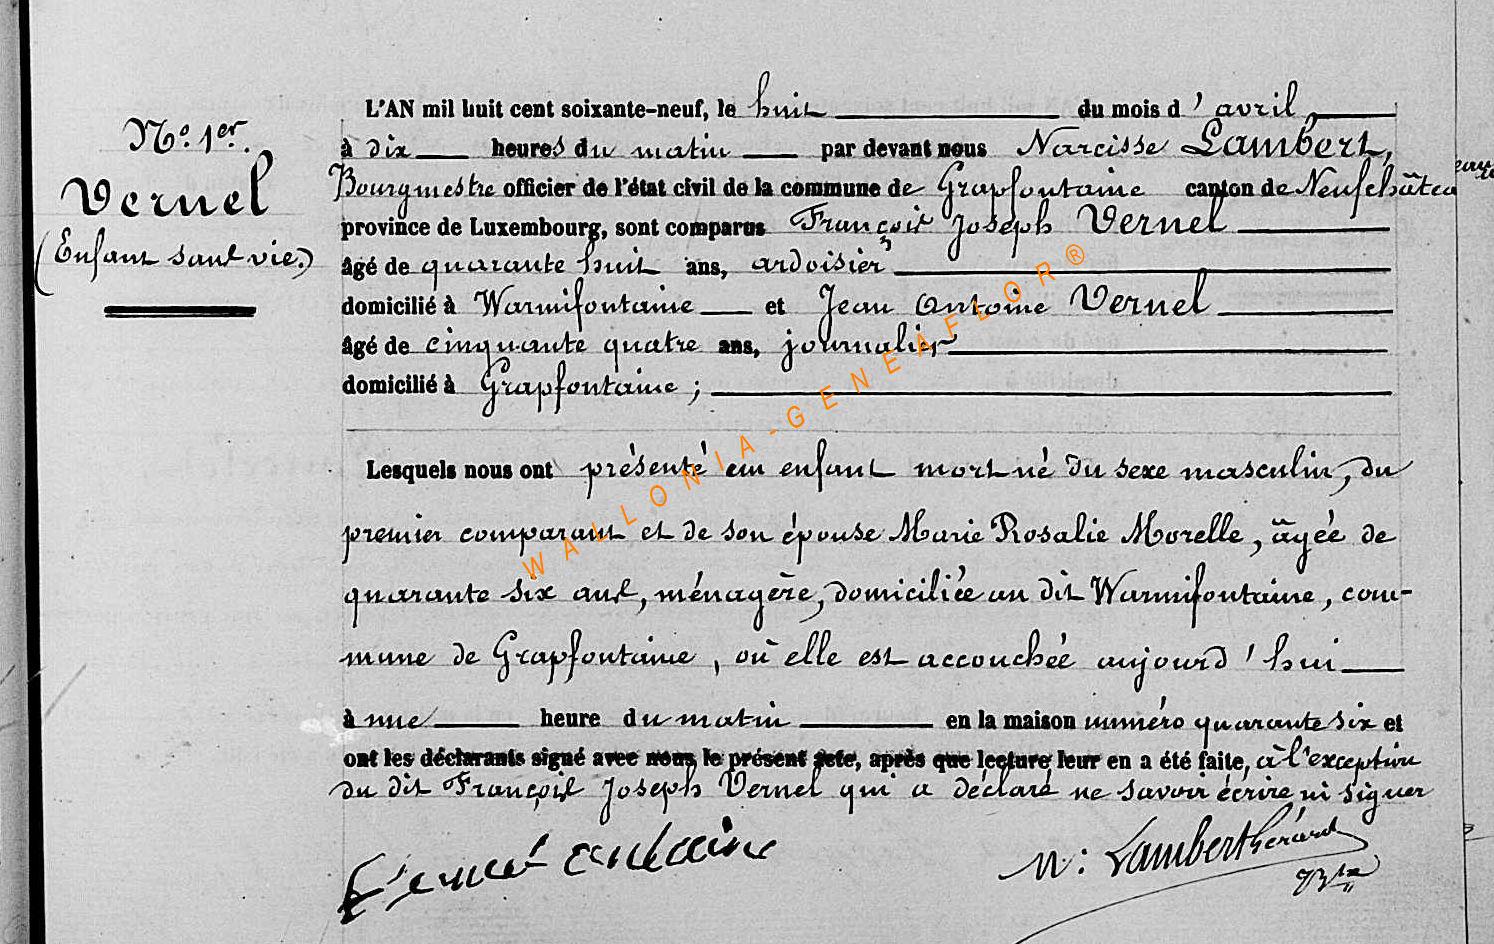 N.o 1er.
Vernel
(Enfant sans vie.)
L'AN mil huit cent soixante-neuf, le huit du mois d'avril
à dix heures du matin par devant nous Narcisse Lambert,
Bourgmestre officier de l'état civil de la commune de Grapfontaine canton de Neufchâteau
province de Luxembourg, sont comparus François Joseph Vernel
âgé de quarante huit ans, ardoisier
domicilié à Warmifontaine et Jean Antoine Vernel
âgé de cinquante quatre ans, journalier
domicilié à Grapfontaine ;
Lesquels nous ont présenté un enfant mort né du sexe masculin, du
premier comparant et de son épouse Marie Rosalie Morelle, âgée de
quarante six ans, ménagère, domiciliée au dit Warmifontaine, com-
mune de Grapfontaine, où elle est accouchée aujourd'hui
à une heure du matin en la maison numéro quarante six et
ont les déclarants signé avec nous le présent acte, après que lecture leur en a été faite, à l'exception
du dit François Joseph Vernel qui a déclaré ne savoir écrire ni signer
Vernel antoine
N: Lambert Gérard
WALLONIA-GENEAFLOR®